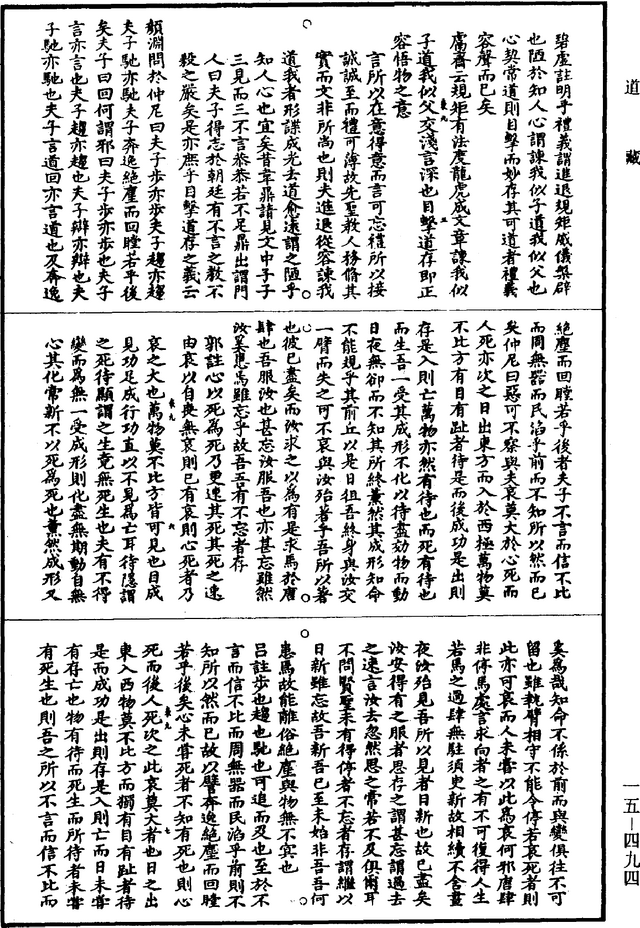 道藏
碧虛註明乎禮義謂進退規矩威儀槃辟
也陋於知人心謂諫我似子道我似父也
心契常道則目擊而妙存其可道者禮義
容聲而已矣
鬳齋云規矩有法度龍虎成文章諫我似
子道我似父交淺言深也目擊道存即正
容悟物之意
言所以在意得意而言可忘禮所以接
誠誠至而禮可薄故先聖教人務脩其
實而文非所尚也則夫進退從容諫我
道我者形諜成光去道愈遠謂之陋乎
知人心也宜矣昔韋鼎請見文中子子
三見而三不言恭恭若不足鼎出謂門
人曰夫子得志於朝廷有不言之教不
殺之嚴矣是亦庶乎目擊道存之義云
顏淵問於仲尼曰夫子步亦步夫子趨亦趨
夫子馳亦馳夫子奔逸絕塵而回瞠若乎後
矣夫子曰回何謂邪曰夫子步亦步也夫子
言亦言也夫子趨亦趨也夫子辯亦辯也夫
子馳亦馳也夫子言道回亦言道也及奔逸
絕塵而回瞠若乎後者夫子不言而信不比
而周無器而民滔乎前而不知所以然而已
矣仲尼曰惡可不察與夫哀莫大於心死而
人死亦次之日出東方而入於西極萬物莫
不比方有目有趾者待是而後成功是出則
存是入則亡萬物亦然有待也而死有待也
而生吾一受其成形不化以待盡効物而動
日夜無卻而不知其所終薰然其成形知命
不能規乎其前丘以是日徂吾終身與汝交
一臂而失之可不哀與汝殆著乎吾所以著
也彼已盡矣而汝求之以為有是求馬於唐
肆也吾服汝也甚忘汝服吾也亦甚忘雖然
汝奚患焉雖忘乎故吾吾有不忘者存
郭註心以死為死乃更速其死其死之速
由哀以自喪無哀則已有哀則心死者乃
哀之大也萬物莫不比方皆可見也目成
見功足成行功直以不見為亡耳待隱謂
之死待顯謂之生竟無死生也夫有不得
變而為無一受成形則化盡無期動自無
心其化常新不以死為死也薰然成形又
奚為哉知命不係於前而與變俱往不可
留也雖執臂相守不能令停若哀死者則
此亦可哀而人未嘗以此為哀何邪唐肆
非停馬處言求向者之有不可復得人生
若馬之過肆無駐須臾新故相續不舍晝
夜汝殆見吾所以見者日新也故已盡矣
汝安得有之服者思存之謂甚忘謂過去
之速言汝去忽然思之常若不及俱爾耳
不問賢聖未有得停者不忘者存謂繼以
日新雖忘故吾新吾已至未始非吾吾何
患焉故能離俗絕塵與物無不冥也
呂註步也趨也馳也可追而及也至於不
言而信不比而周無器而民滔乎前則不
知所以然而已故以譬奔逸絕塵而回瞠
若乎後矣心未嘗死者不知有死也則心
死而後人死次之此哀莫大者也日之出
東入西物莫不比方而獨有目有趾者待
是而成功是出則存是入則亡而日未嘗
有存亡也物有待而死生而所待者未嘗
有死生也則吾之所以不言而信不比而
一五—四九四